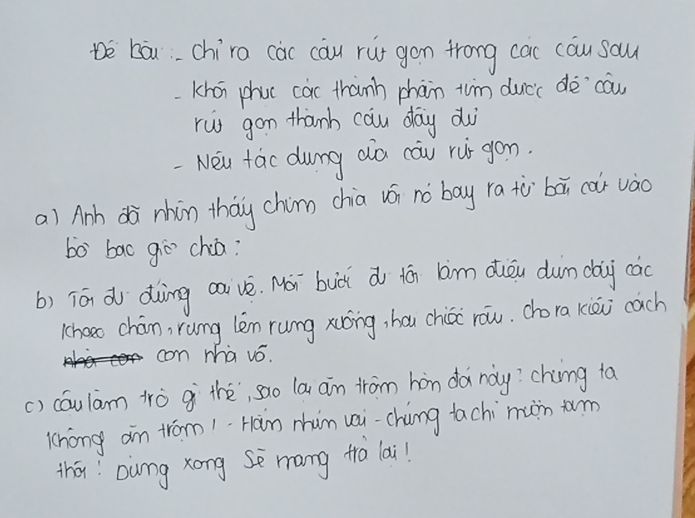 Đề bài: - chỉ ra các câu rút gọn trong các câu sau
- khôi phục các thành phần tỉnh được để câu
rút gọn thành câu đầy đủ
- Nêu tác dụng của câu rút gọn.
a) Anh đã nhìn thấy chim chìa vôi nó bay ra từ bãi cát vào
bờ bao giờ chưa?
b) Tôi đi đứng oai vệ. Mỗi bước đi tôi làm điệu dún dẩy các
khoeo chân, rung lên rung xuống, hai chiếc râu. Cho ra kiểu cách
con nhà võ.
c) Cậu làm trò gì thế, sao lại ăn trộm hòn đá này? chúng ta
không ăn trộm! - Hàn nhún vai - chúng ta chỉ mượn tạm
thôi! Dùng xong sẽ mang trả lại!